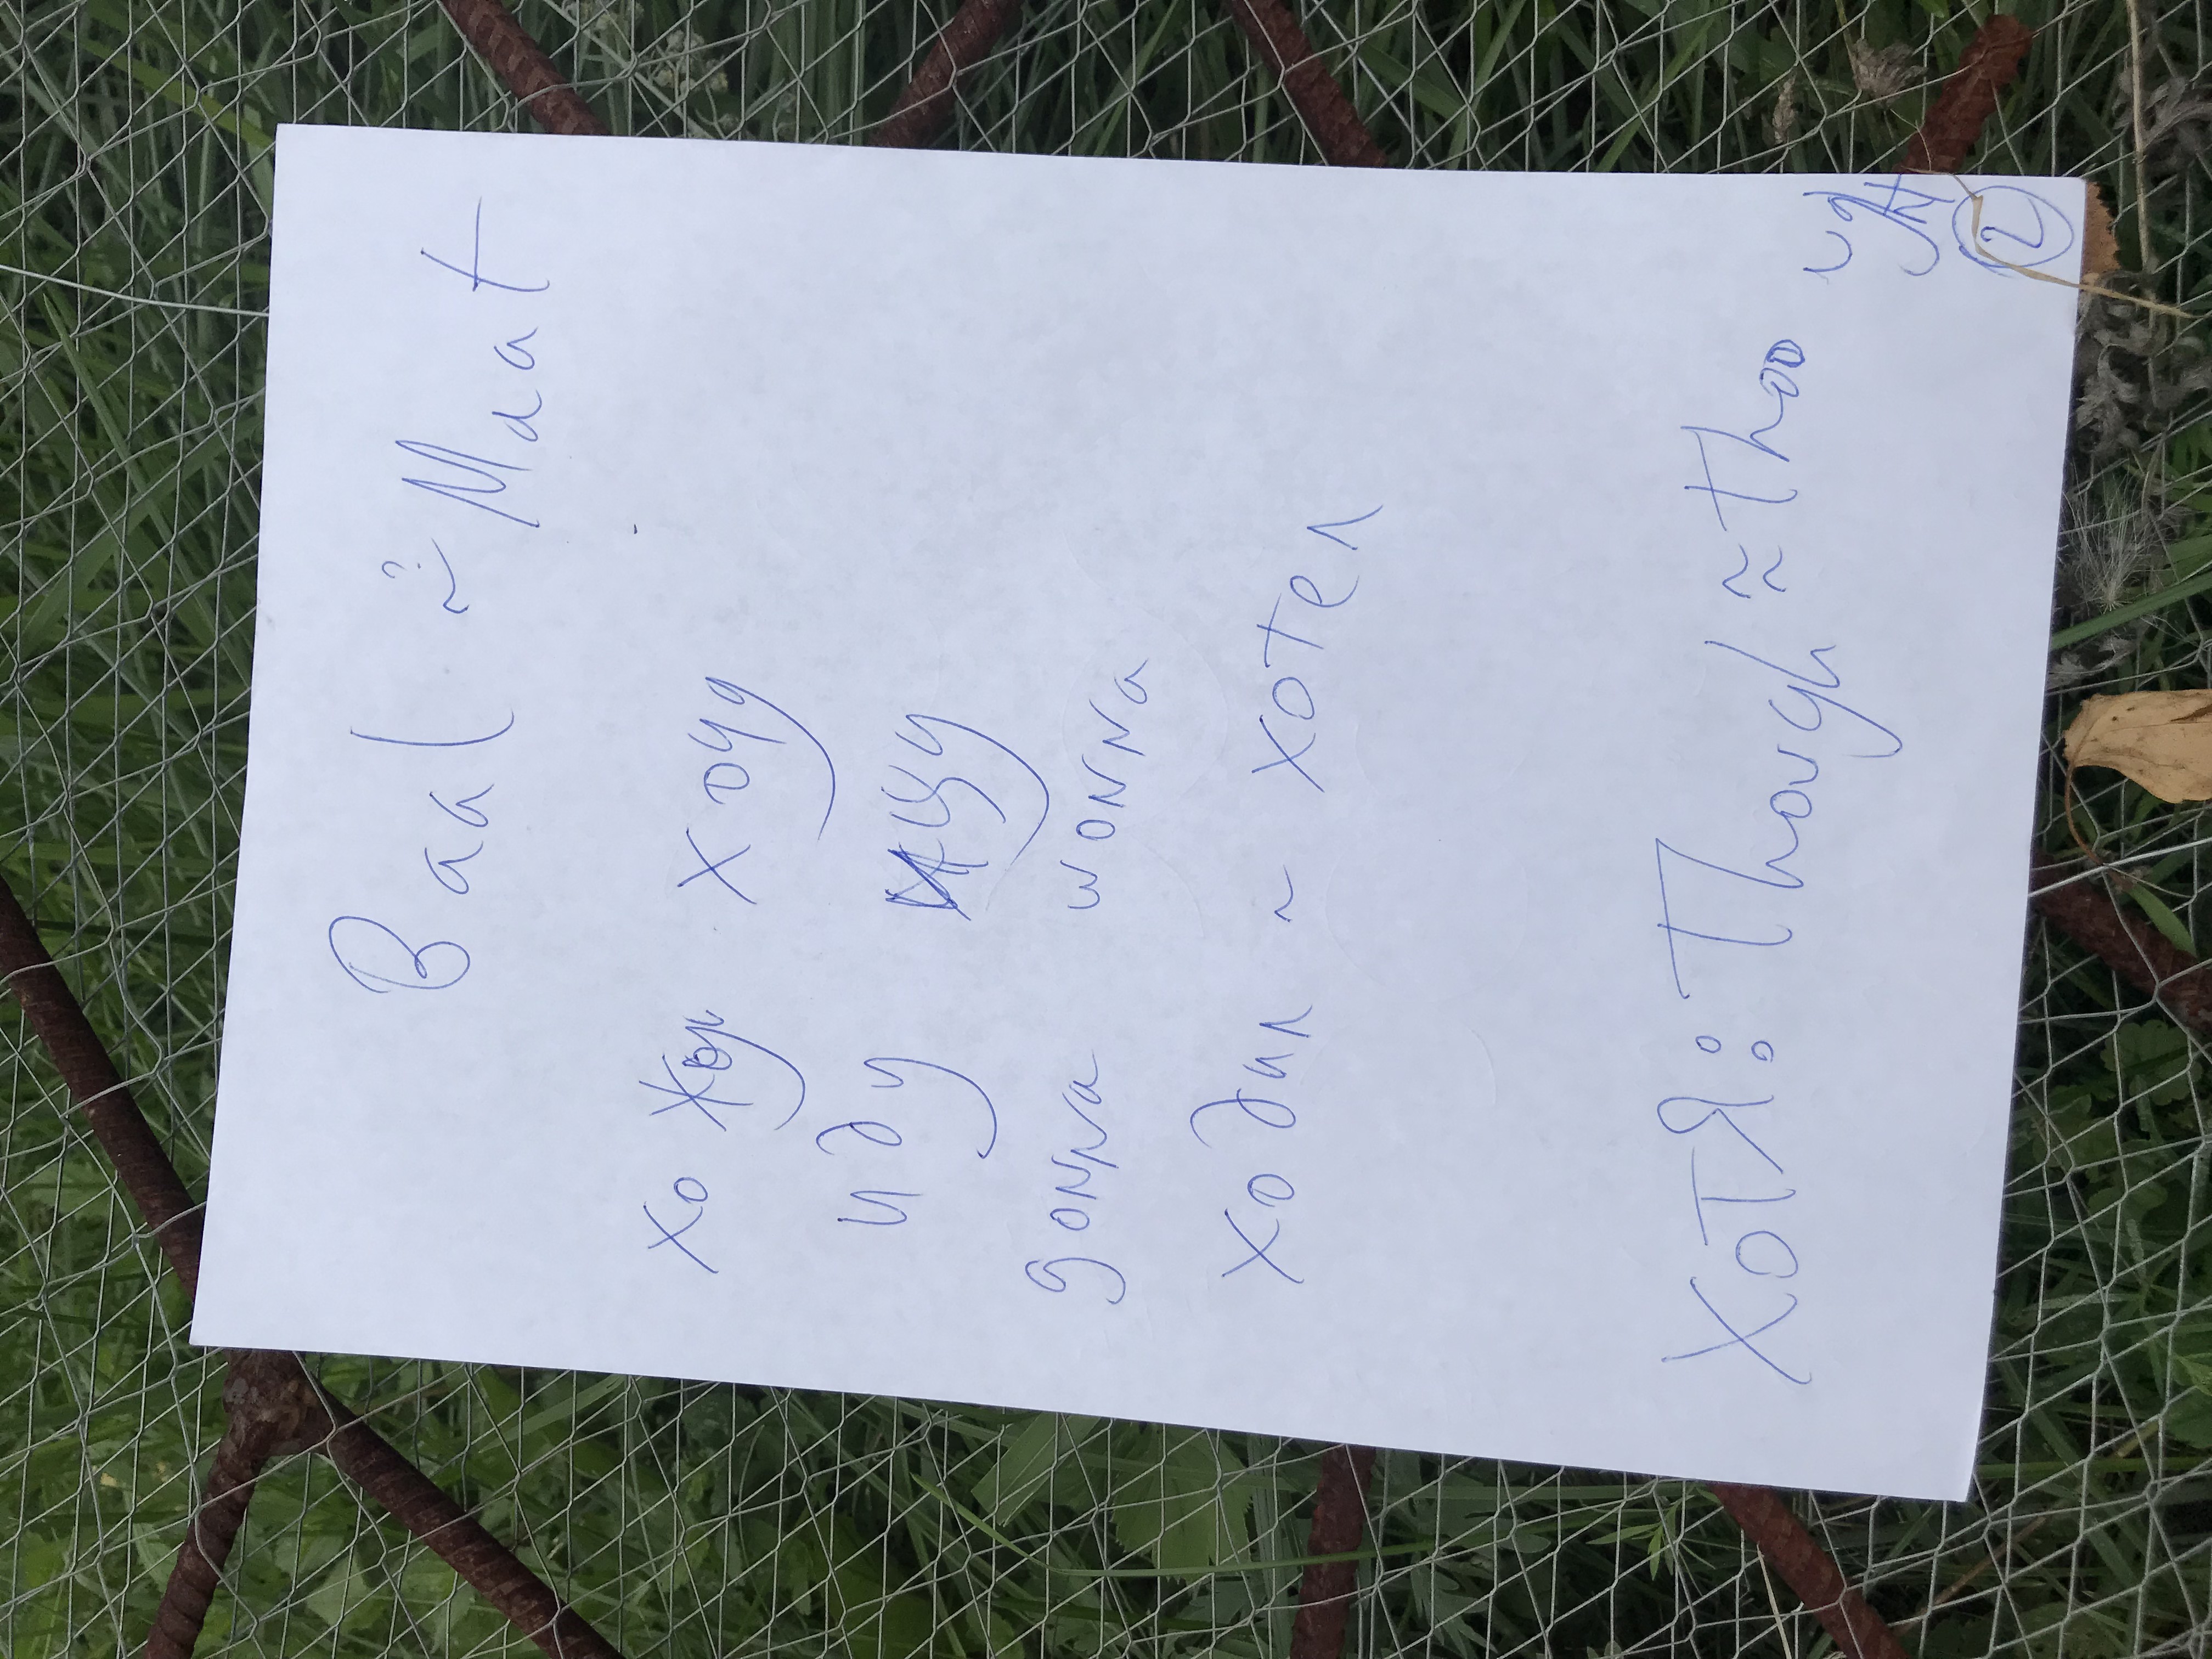 Baal ~? Maat
хожу хочу
иду ищу
gonna wonna
ходил ~ хотел
ХотЯ: Though ≈ thoo
ught
2